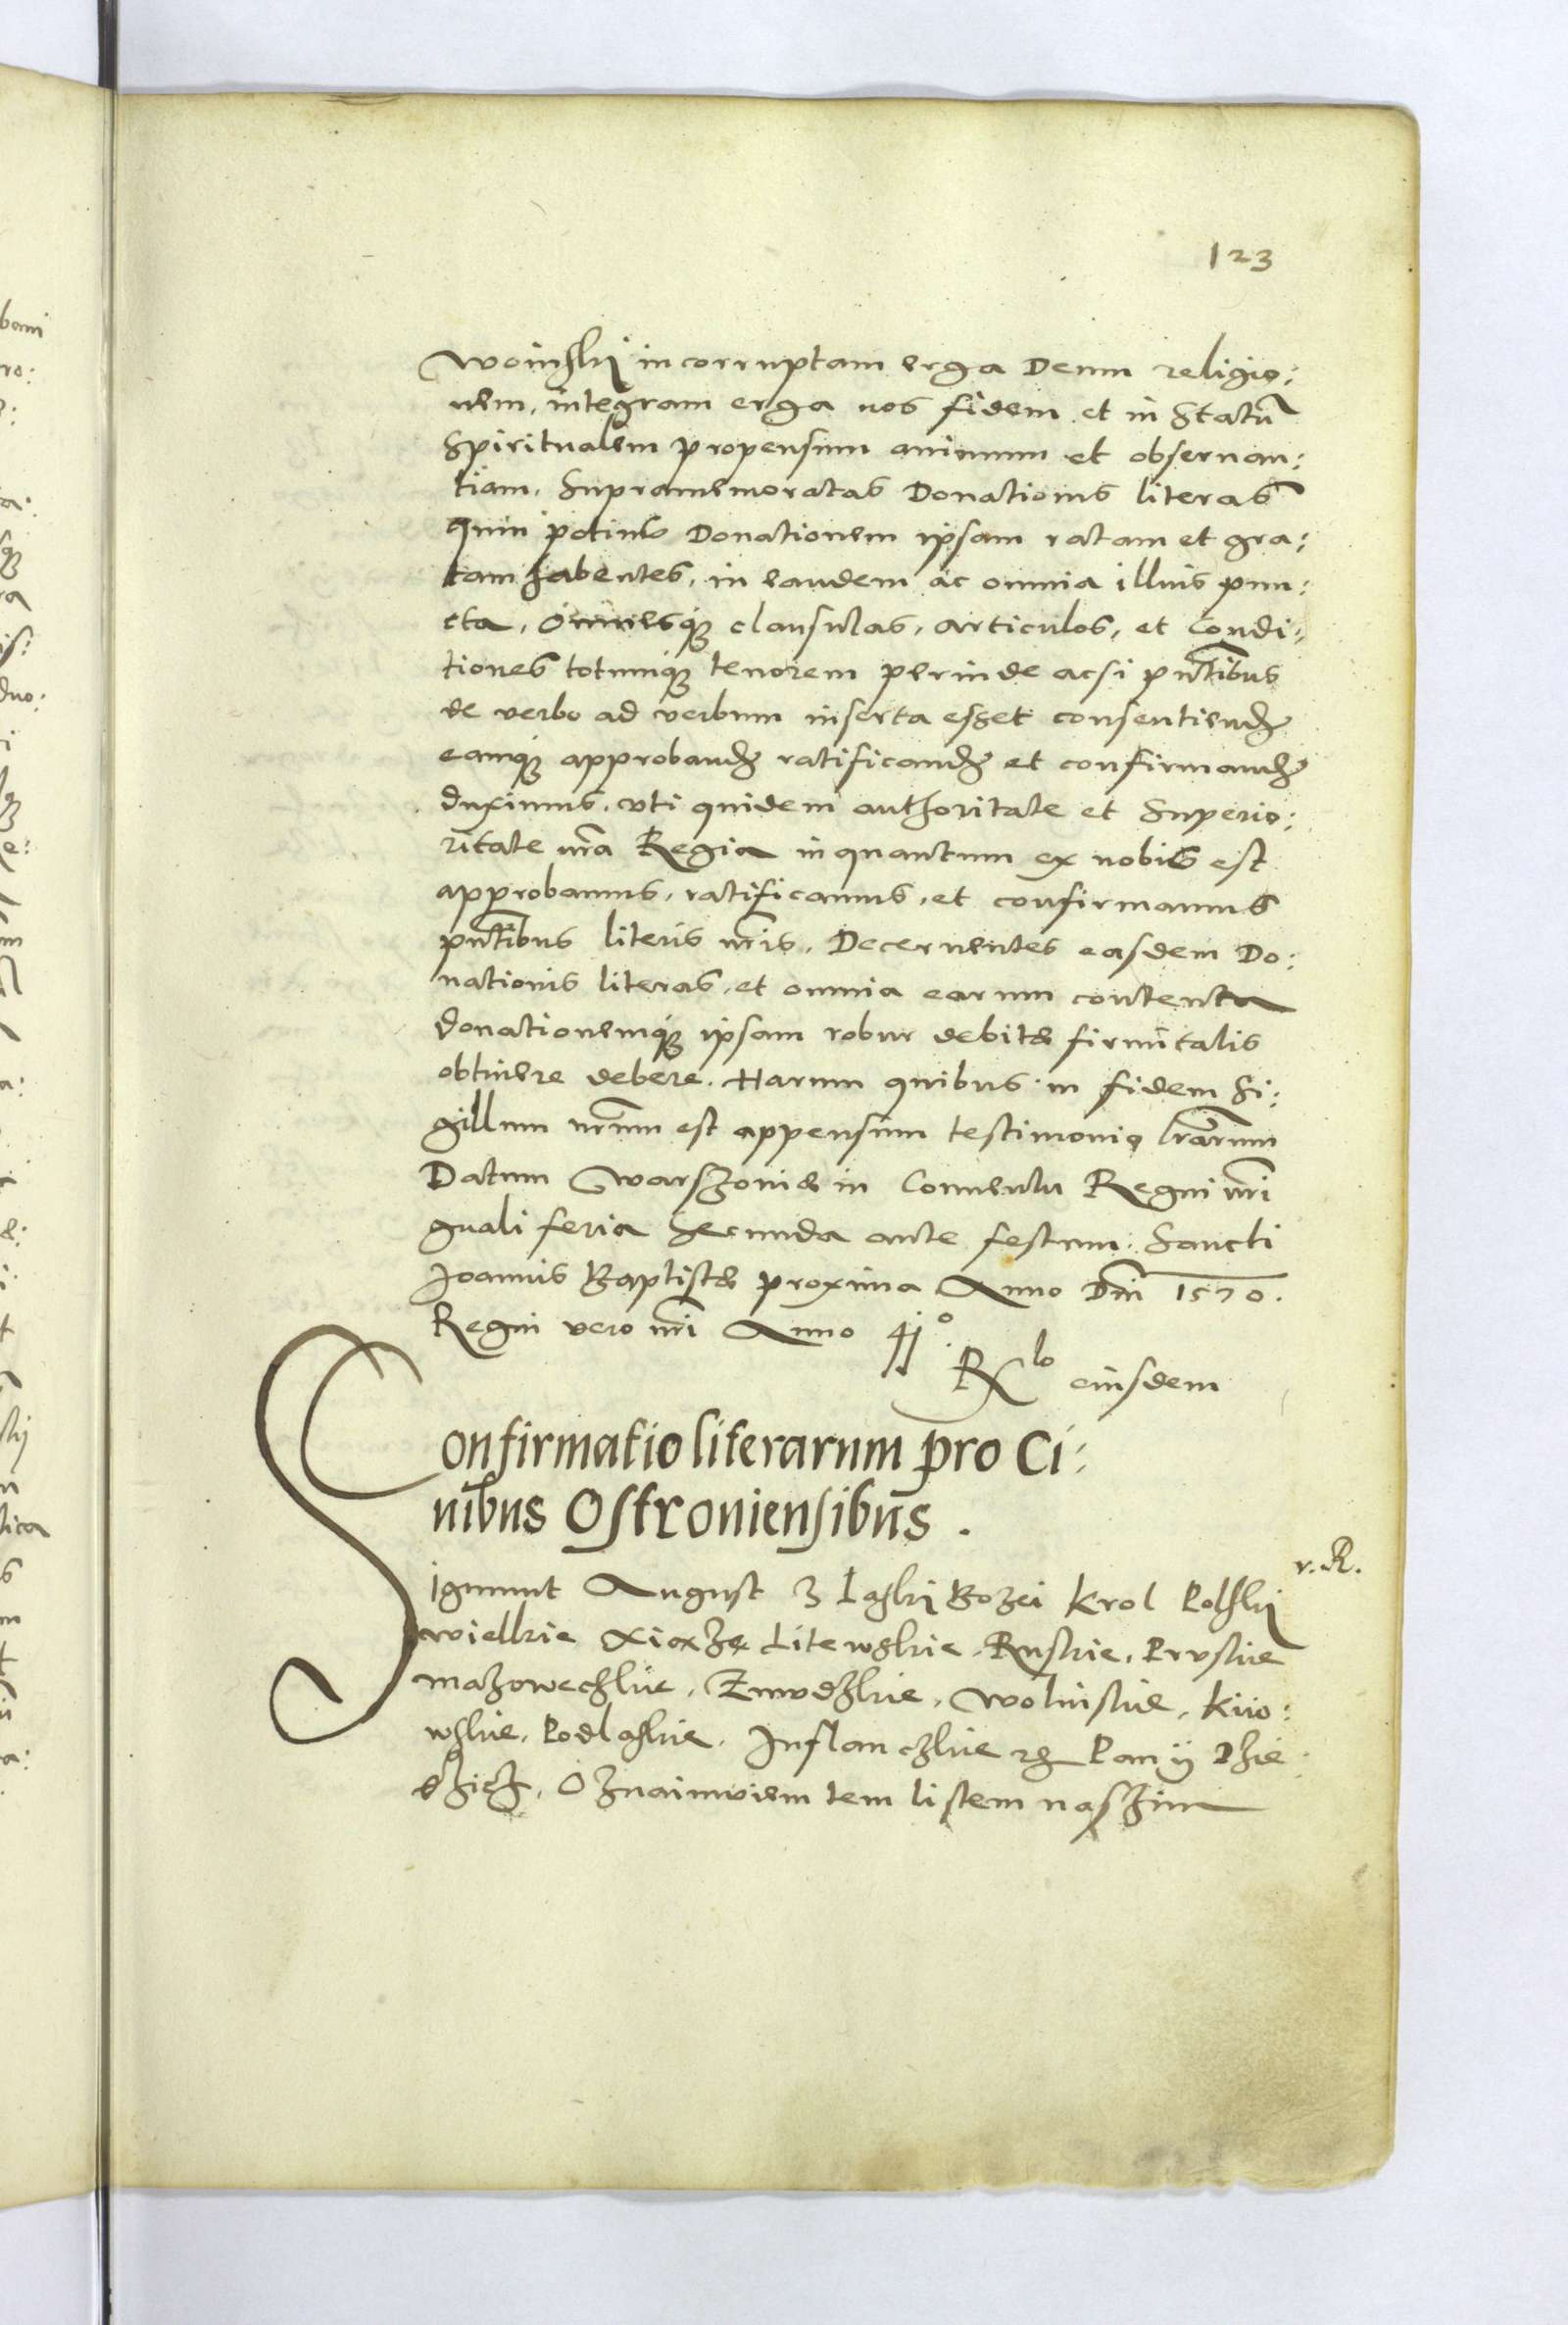 123
Woinski incorruptam erga Deum religio:
nem, integram erga nos fidem et in Statũ
Spiritualem propensum animum et obseruan:
tiam, Supramemoratas Donationis literas
quin potius Donationem ipsam ratam et gra:
tam habentes, in eandem ac omnia illius pun:
cta, Omnesq; clausulas, articulos, et Condi:
tiones totumq; tenorem perinde acsi pñtibus
de verbo ad verbum inserta esset consentiend
eamq; approband ratificand et confirmand
duximus, vti quidem authoritate et Superio:
ritate nrã Regia in quantum ex nobis est
approbamus, ratificamus, et confirmamus
pñtibus literis nrĩs. Decernentes easdem Do:
nationis literas, et omnia earum contenta
donationemq; ipsam robur debitæ firmitatis
obtinere debere. Harum quibus in fidem Si:
gillum nrũm est appensum testimonio lrãrum
Datum Warszoviæ in Conuentu Regni nrĩ
gnali feria Secunda ante festum Sancti
Joannis Baptistæ proxima Anno Dñi 1570.
Regni vero nrĩ Anno 41°.
Rlo eiusdem
Confirmatio literarum pro Ci:
uibus Ostrouiensibus.
v. R.
Sigmunt August z Łaski Bozei Krol Polski
wielkie Xiąze Litewskie, Ruskie, Pruskie
mazoweczkie, Zmudzkie, Wolinskie, Kiio:
wskie, Podlaskie, Inflanczkie etc Pan y Dzie
dzicz. Oznaimuiem tem listem naszim